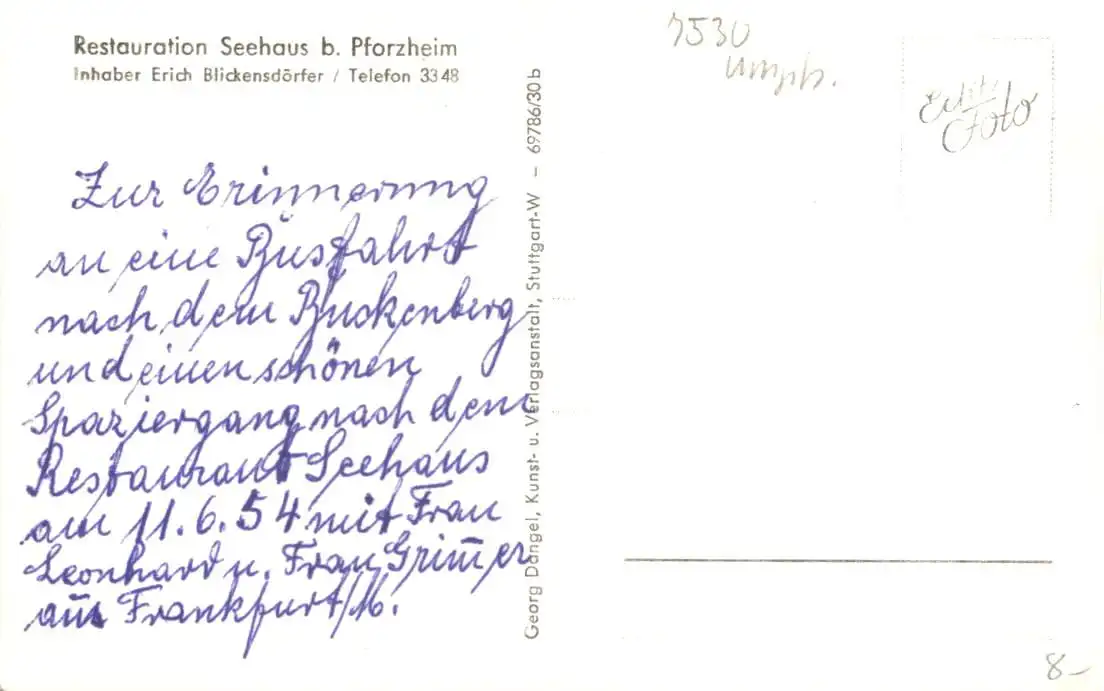 Restauration Seehaus b. Pforzheim
Inhaber Erich Blickensdörfer / Telefon 3348
Zur Erinnerung
an eine Busfahrt
nach dem Buckenberg
und einen schönen
Spaziergang nach dem
Restaurant Seehaus
am 11.6.54 mit Frau
Leonhard u. Frau Grim̅er
aus Frankfurt/M.
Georg Dangel, Kunst- u. Verlagsanstalt, Stuttgart-W – 69786/30 b
7530
Echt
Foto
8-